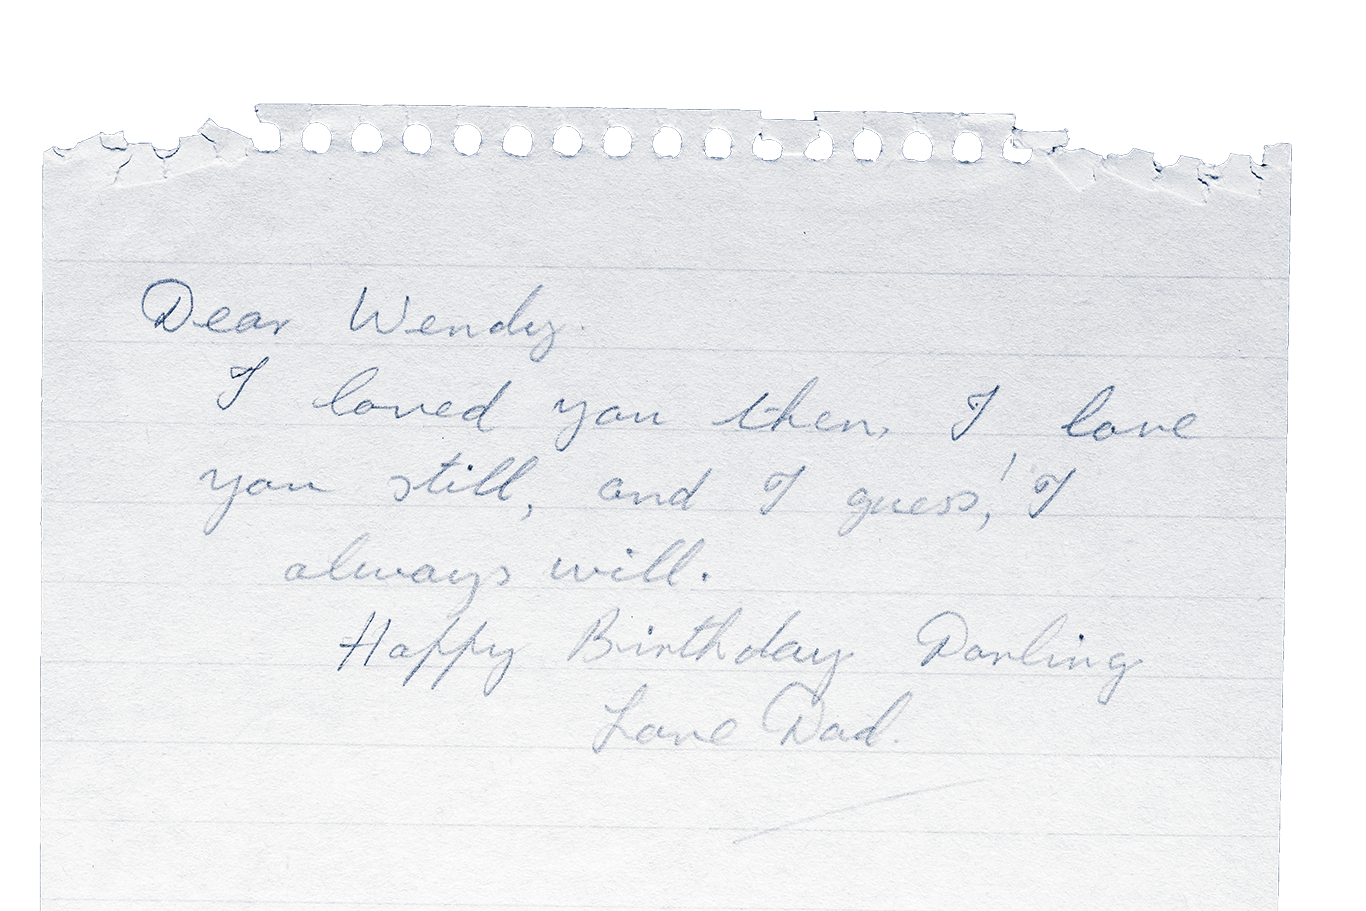 Dear Wendy.
I loved you then, I love
you still, and I guess,! I
always will.
Happy Birthday Darling
Love Dad.